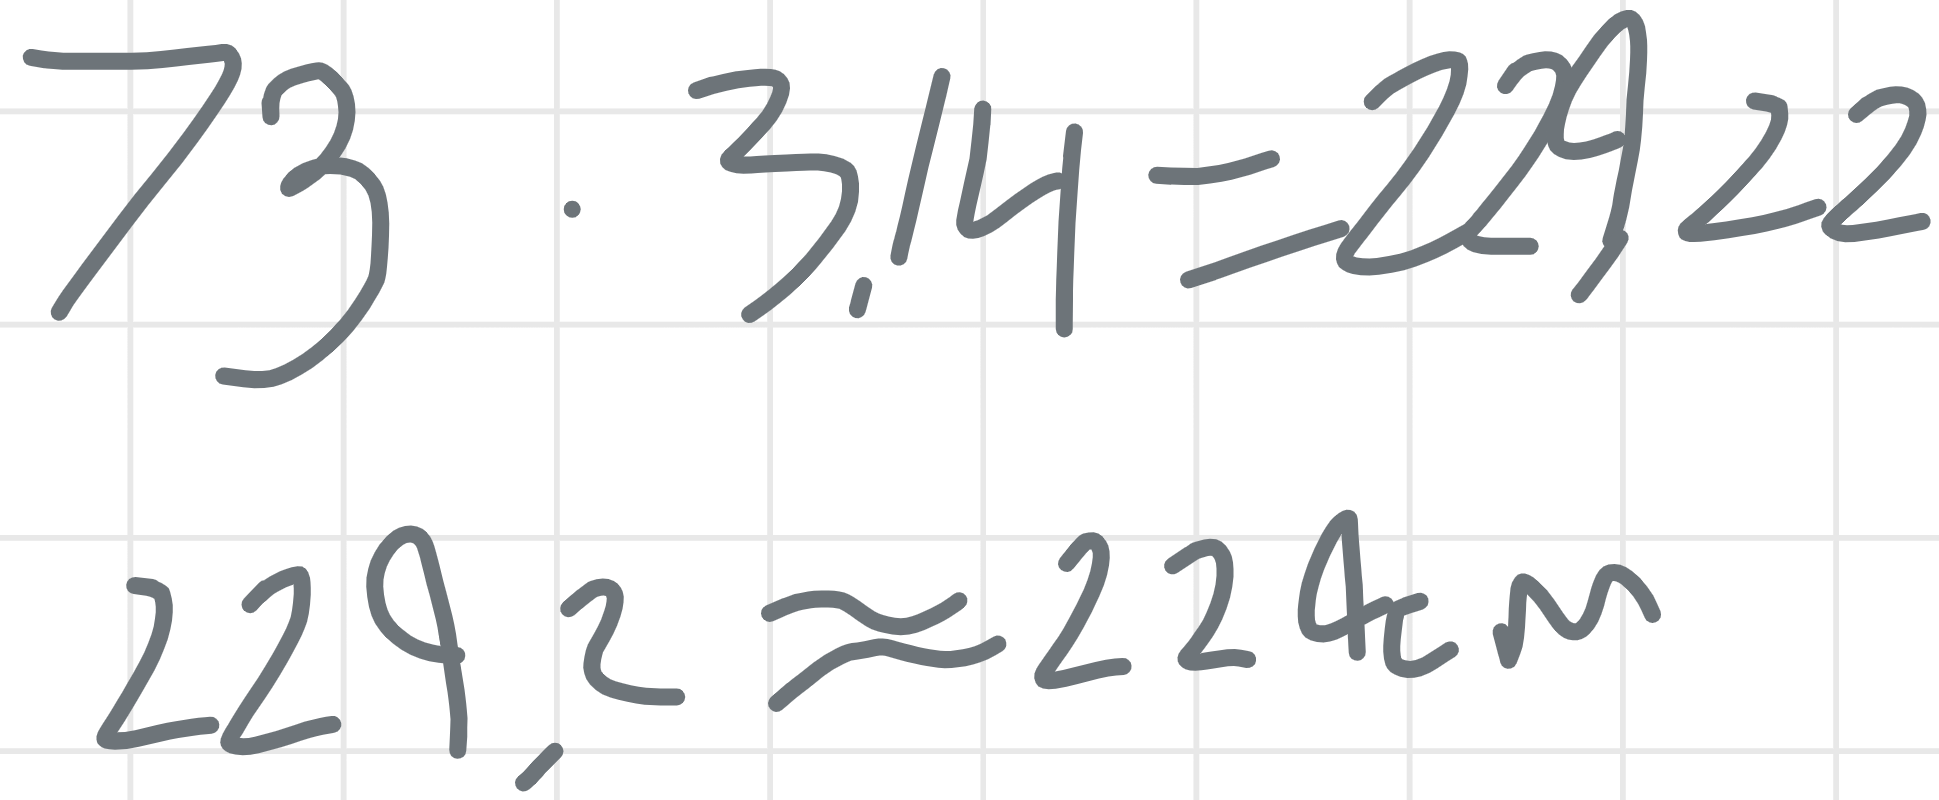 73 · 3,14 = 229,22
229,2 ≈ 229cm